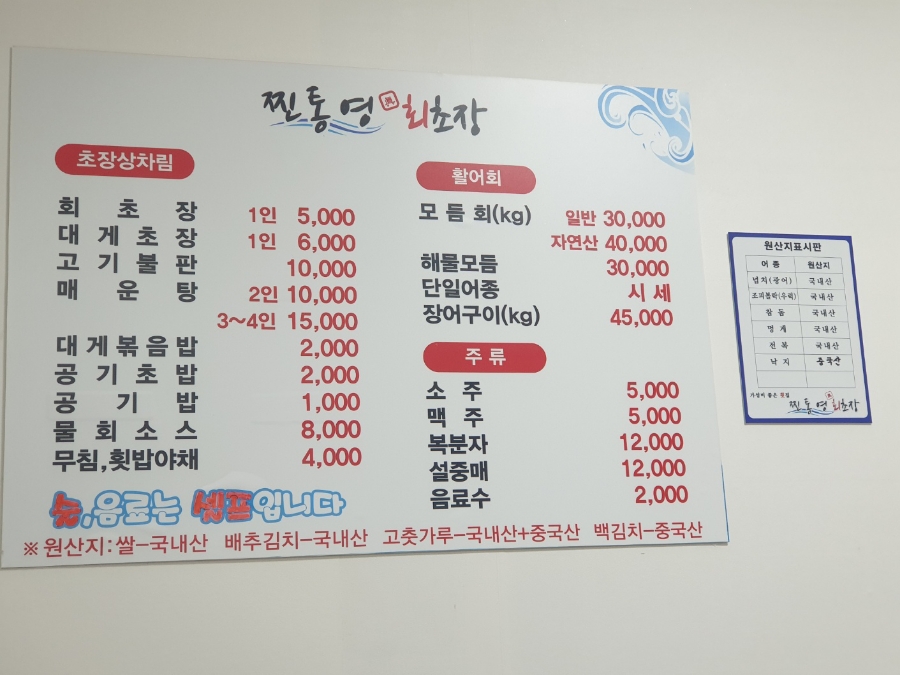 찐통영회초장
초장상차림
회 초 장 1인 5,000
대 게 초 장 1인 6,000
고 기 불 판 10,000
매 운 탕 2인 10,000
3~4인 15,000
대 게 볶 음 밥 2,000
공 기 초 밥 2,000
공 기 밥 1,000
물 회 소 스 8,000
무침,횟밥야채 4,000
술,음료는 셀프입니다
활어회
모 듬 회(kg) 일반 30,000
자연산 40,000
해물모듬 30,000
단일어종 시 세
장어구이(kg) 45,000
주 류
소 주 5,000
맥 주 5,000
복분자 12,000
설중매 12,000
음료수 2,000
※원산지:쌀-국내산 배추김치-국내산 고춧가루-국내산+중국산 백김치-중국산
원산지표시판
어 종 원산지
넙치(광어) 국내산
조피볼락(우럭) 국내산
참 돔 국내산
멍 게 국내산
전 복 국내산
낙 지 중국산
가성비 좋은 횟집
찐통영회초장